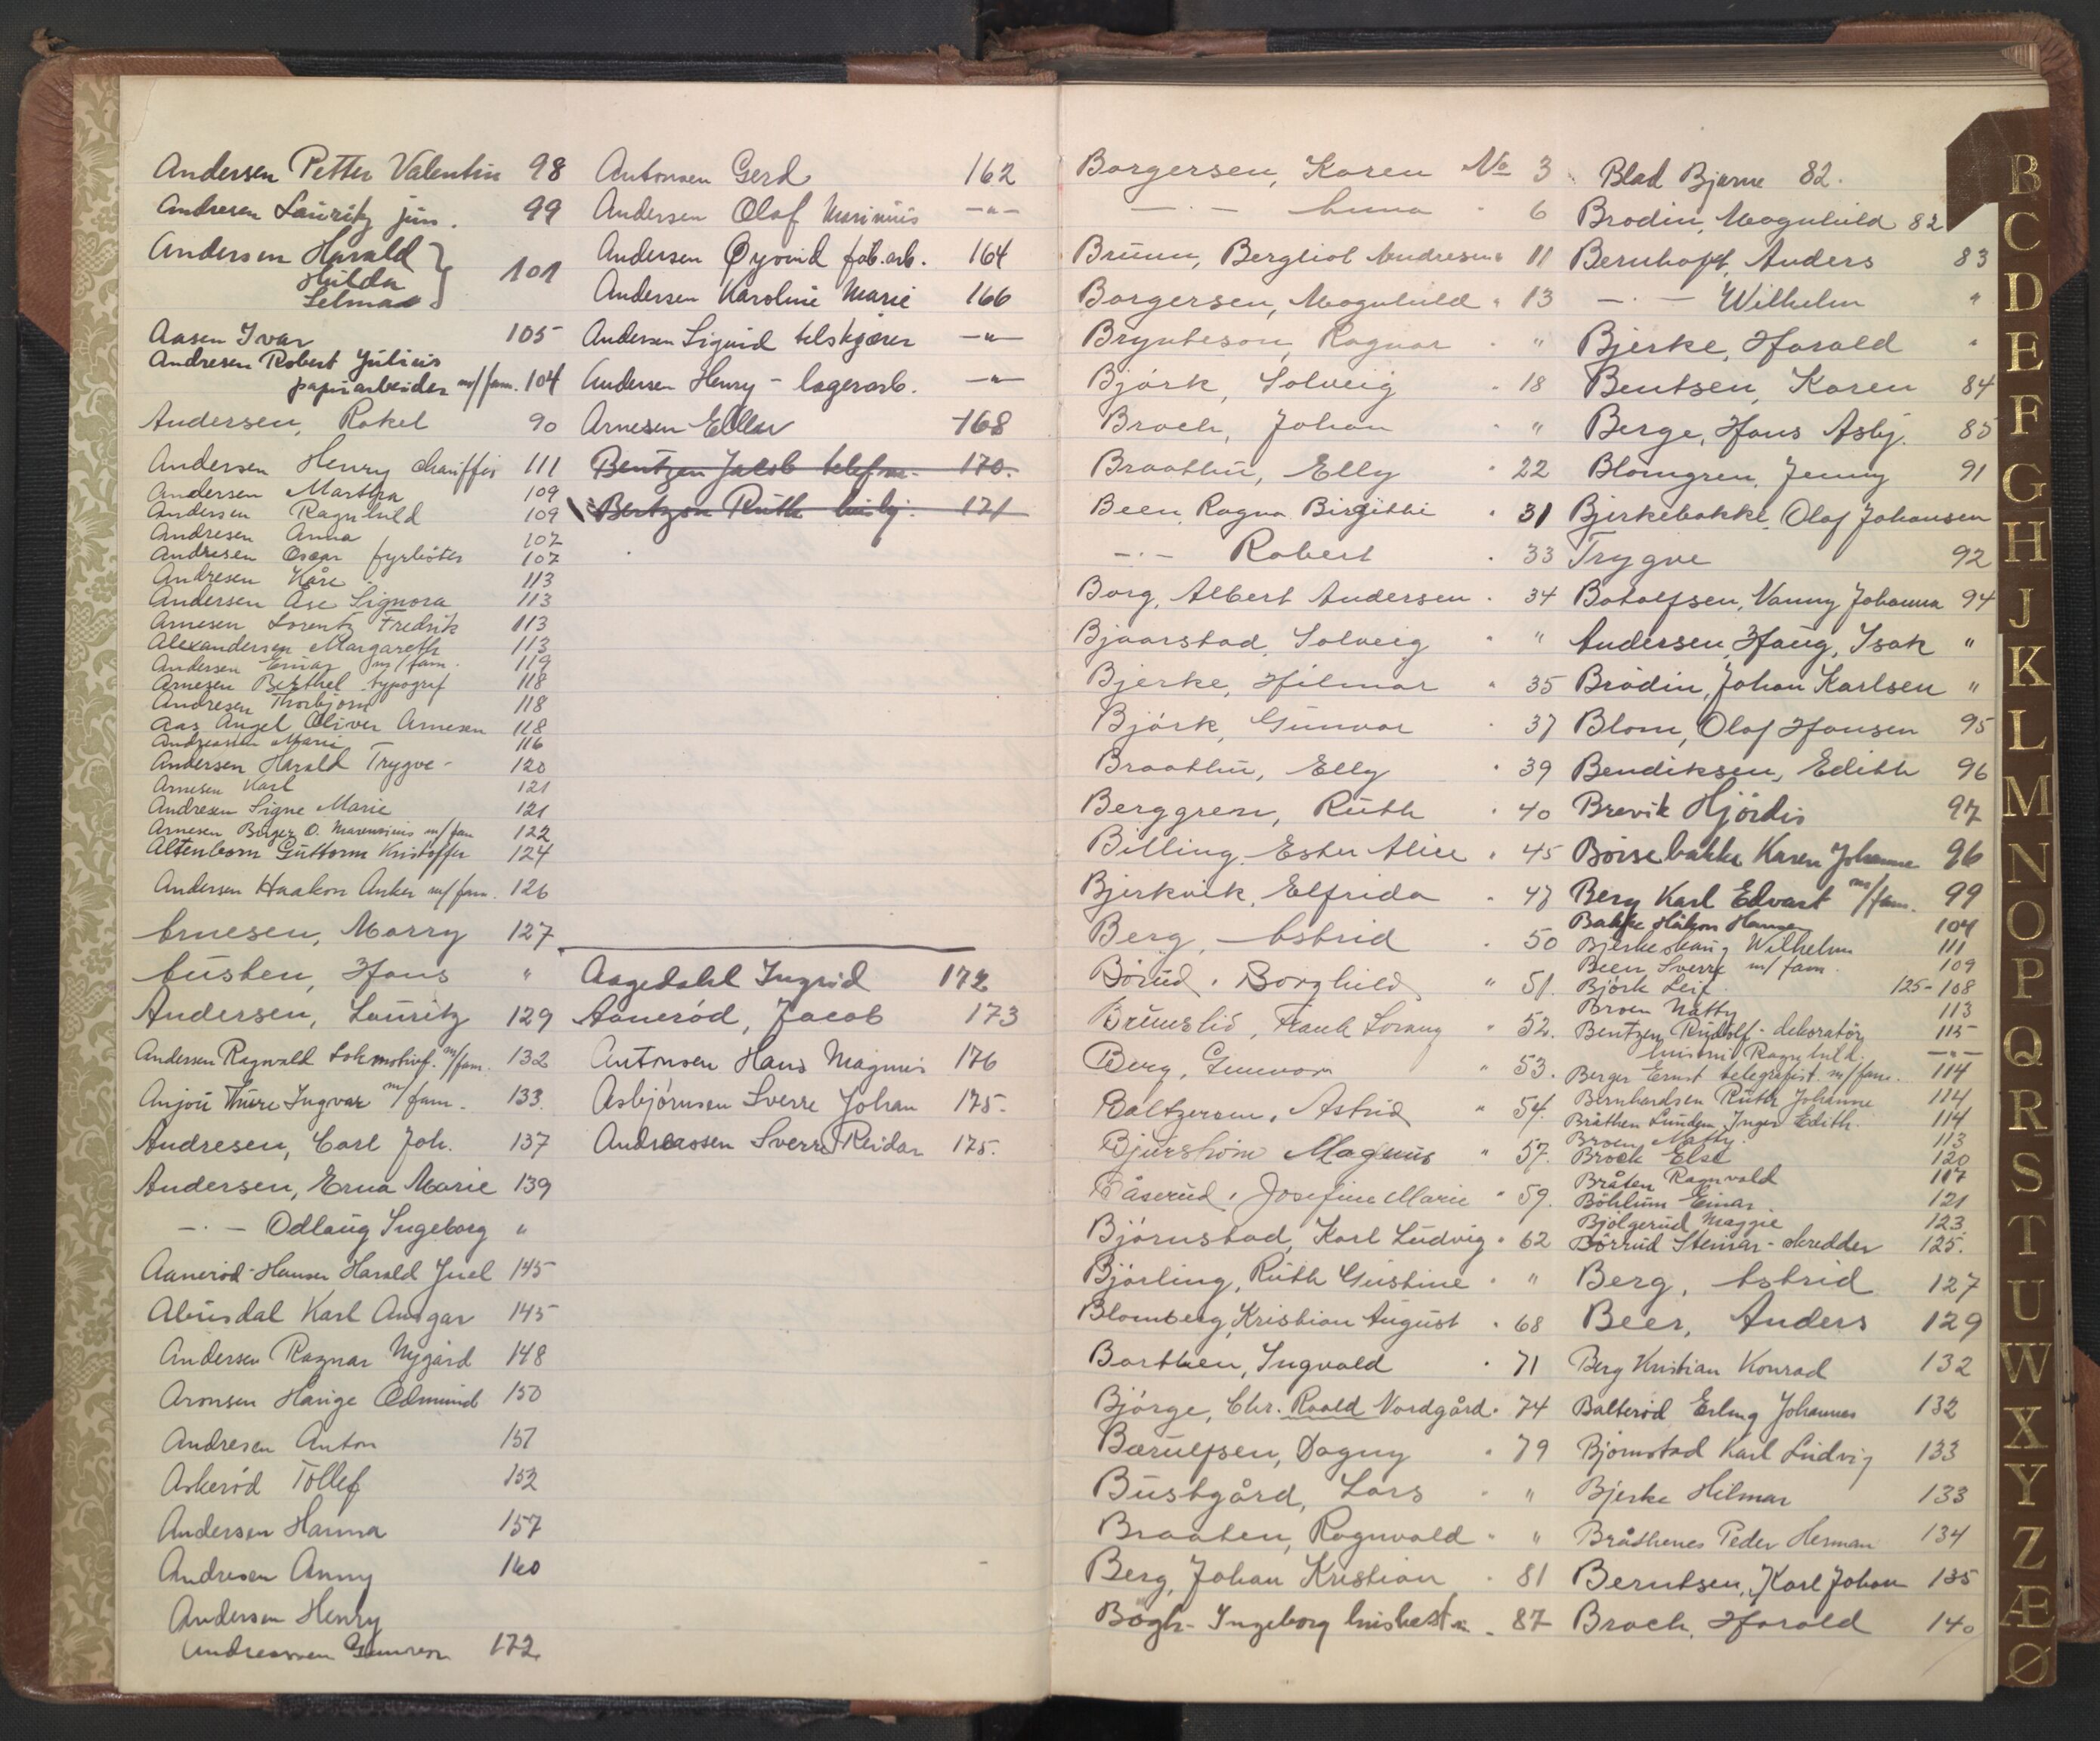 Andersen Petter Valentin 98
Andresen Lauritz jun. 99
Andersen Harald
Hilda 101
Selma
Aasen Ivar 105
Andresen Robert Julius
papirarbeider m/fam. 104
Andersen, Rakel 90
Andersen Henry chauffør 111
Andersen Martha 109
Andersen Ragnhild 109
Andresen Anna 107
Andresen Oscar fyrbøter 107
Andresen Kåre 113
Andersen Åse Signora 113
Arnesen Lorentz Fredrik 113
Alexandersen Margareth 113
Andersen Einar m/fam. 119
Arnesen Berthel typograf 118
Andresen Thorbjørn 118
Aas Angel Oliver Arnesen 118
Andreassen Marie 116
Andersen Harald Trygve - 120
Arnesen Karl 121
Andresen Signe Marie 121
Arnesen Birger O. m/fam 122
Altenborn Guttorm Kristoffer 124
Andersen Haakon Anker m/fam. 126
Arnesen, Marry 127
Austen, Hans "
Andersen, Lauritz 129
Andersen Ragnvald Lokomotivf. m/fam. 132
Anjou Thure Ingvar m/fam. 133.
Andresen, Carl Joh. 137
Andersen, Erna Marie 139
— · — Odlaug Ingeborg "
Aanerød-Hansen Harald Juel 145
Abusdal Karl Ansgar 145
Andersen Ragnar Nygård 148
Aronsen Hauge Edmund 150
Andresen Anton 151
Askerød Tollef 152
Andersen Hanna 157
Andresen Anny 160
Andersen Henry
Andreassen Gunvor 172
Antonsen Gerd 162
Andersen Olaf Marinius —"—
Andersen Øyvind fab.arb. 164
Andersen Karoline Marie 166
Andersen Sigurd telskjærer —"—
Andersen Henry - lagerarb. —"—
Arnesen Ellen 168
Bentzen Jacob telefm. 170.
Bentzon Ruth 171
Aagedahl Ingrid 172
Aanerød, Jacob 173
Antonsen Hans Magnus 176
Asbjørnsen Sverre Johan 175.
Andreassen Sverre Reidar 175.
Borgersen, Karen No 3
— · — Anna " 6
Bruun, Bergliot Andresen " 11
Borgersen, Magnhild " 13
Brynteson, Ragnar " "
Bjørk, Solveig " 18
Broch, Johan " "
Braathu, Elly " 22
Been, Ragna Birgitthi " 31
— · — Robert " 33
Borg, Albert Andersen " 34
Bjaarstad, Solveig " "
Bjerke, Hilmar " 35
Bjørk, Gunvor " 37
Braathu, Elly " 39
Berggren, Ruth " 40
Billing, Ester Alice " 45
Bjerkvik, Elfrida " 47
Berg, Astrid " 50
Børud, Borghild " 51.
Brunslid, Frank Lorang " 52.
Berg, Gunvor " 53.
Baltzersen, Astrid " 54.
Bjurstrøm Magnus " 57.
Båserud, Josefine Marie " 59.
Bjørnstad, Karl Ludvig " 62
Bjørling, Ruth Gustine " "
Blomberg, Kristian August " 68
Barthen, Ingvald " 71
Bjørge, Chr. Roald Nordgård " 74
Bærulfsen, Dagny " 79
Bustgård, Lars " "
Braaten, Ragnvald " "
Berg, Johan Kristian " 81
Bøgh - Ingeborg husbest. " 87
Blad Bjarne 82.
Brodin, Magnhild 82
Bernhoft, Anders 83
— · — Wilhelm "
Bjerke, Harald "
Bentsen, Karen 84
Berge, Hans Asbj. 85
Blomgren, Jenny 91
Bjerkebakke, Olaf Johansen
Trygve 92
Botolfsen, Nanny Johanna 94
Andersen, Haug, Isak "
Brodin, Johan Karlsen "
Blom, Olaf Hansen 95
Bendiksen, Edith 96
Brevik Hjørdis 97
Børsebakke Karen Johanne 96
Berg Karl Edvart m/fam. 99
Bakke Håkon Hansen 104
Bjerkeskaug Wilhelm 111
Been Sverre m/fam. 109
Bjørk Leif 125-108
Broen Natty 113
Bentzen Rudolf - dekoratør 115
hustru Ragnhild. —"—
Berger Ernst telegrafist m/fam. 114
Bernhardsen Ruth Johanne 114
Bråthen Lunden, Inger Edith. 114
Broen Natty. 113
Brock Else 120
Bråten Ragnvald 117
Böhlum Einar. 121
Bjølgerud Maggie 123
Børrud Steinar - skredder 125.
Berg, Astrid 127
Beer, Anders 129
Berg Kristian Konrad 132
Balterød Erling Johannes 132
Bjørnstad Karl Ludvig 133
Bjerke Hilmar 133
Bråthenes Peder Herman 134
Berntsen, Karl Johan 135
Broch, Harald 140
B
C
D
E
F
G
H
J
K
L
M
N
O
P
Q
R
S
T
U
W
X
Y
Z
Æ
Ø